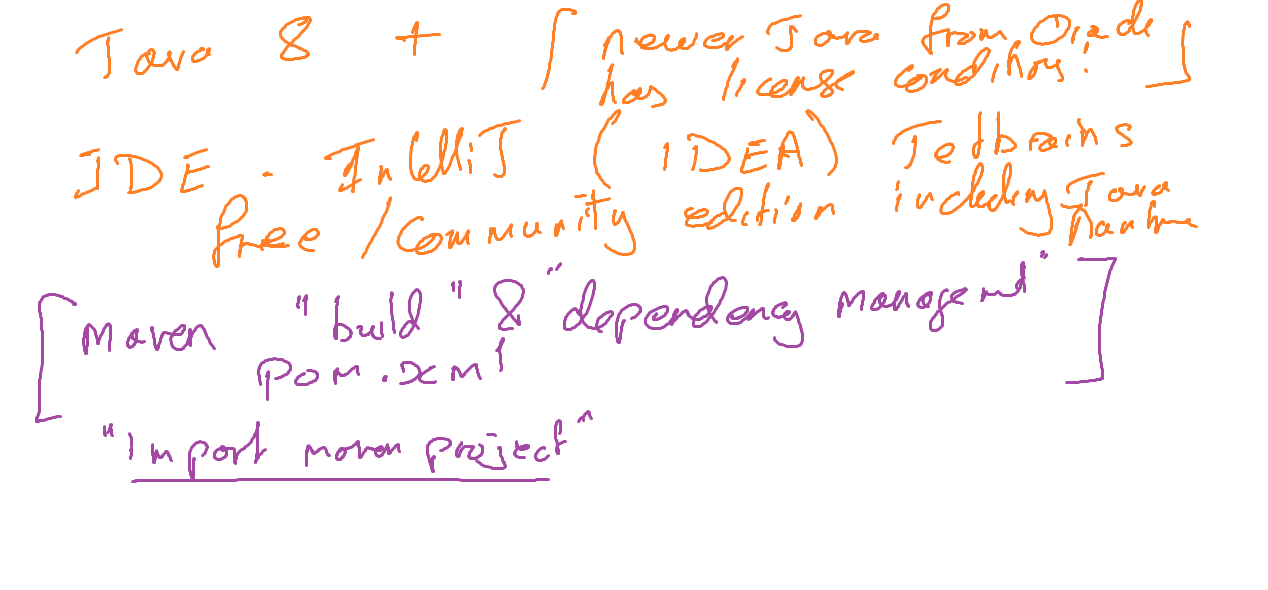 Java 8 + [ newer Java from Oracle
has license conditions! ]
IDE - IntelliJ (IDEA) Jetbrains
free / Community edition including Java
Runtime
[ Maven "build" & "dependency management" ]
pom.xml
"Import maven project"